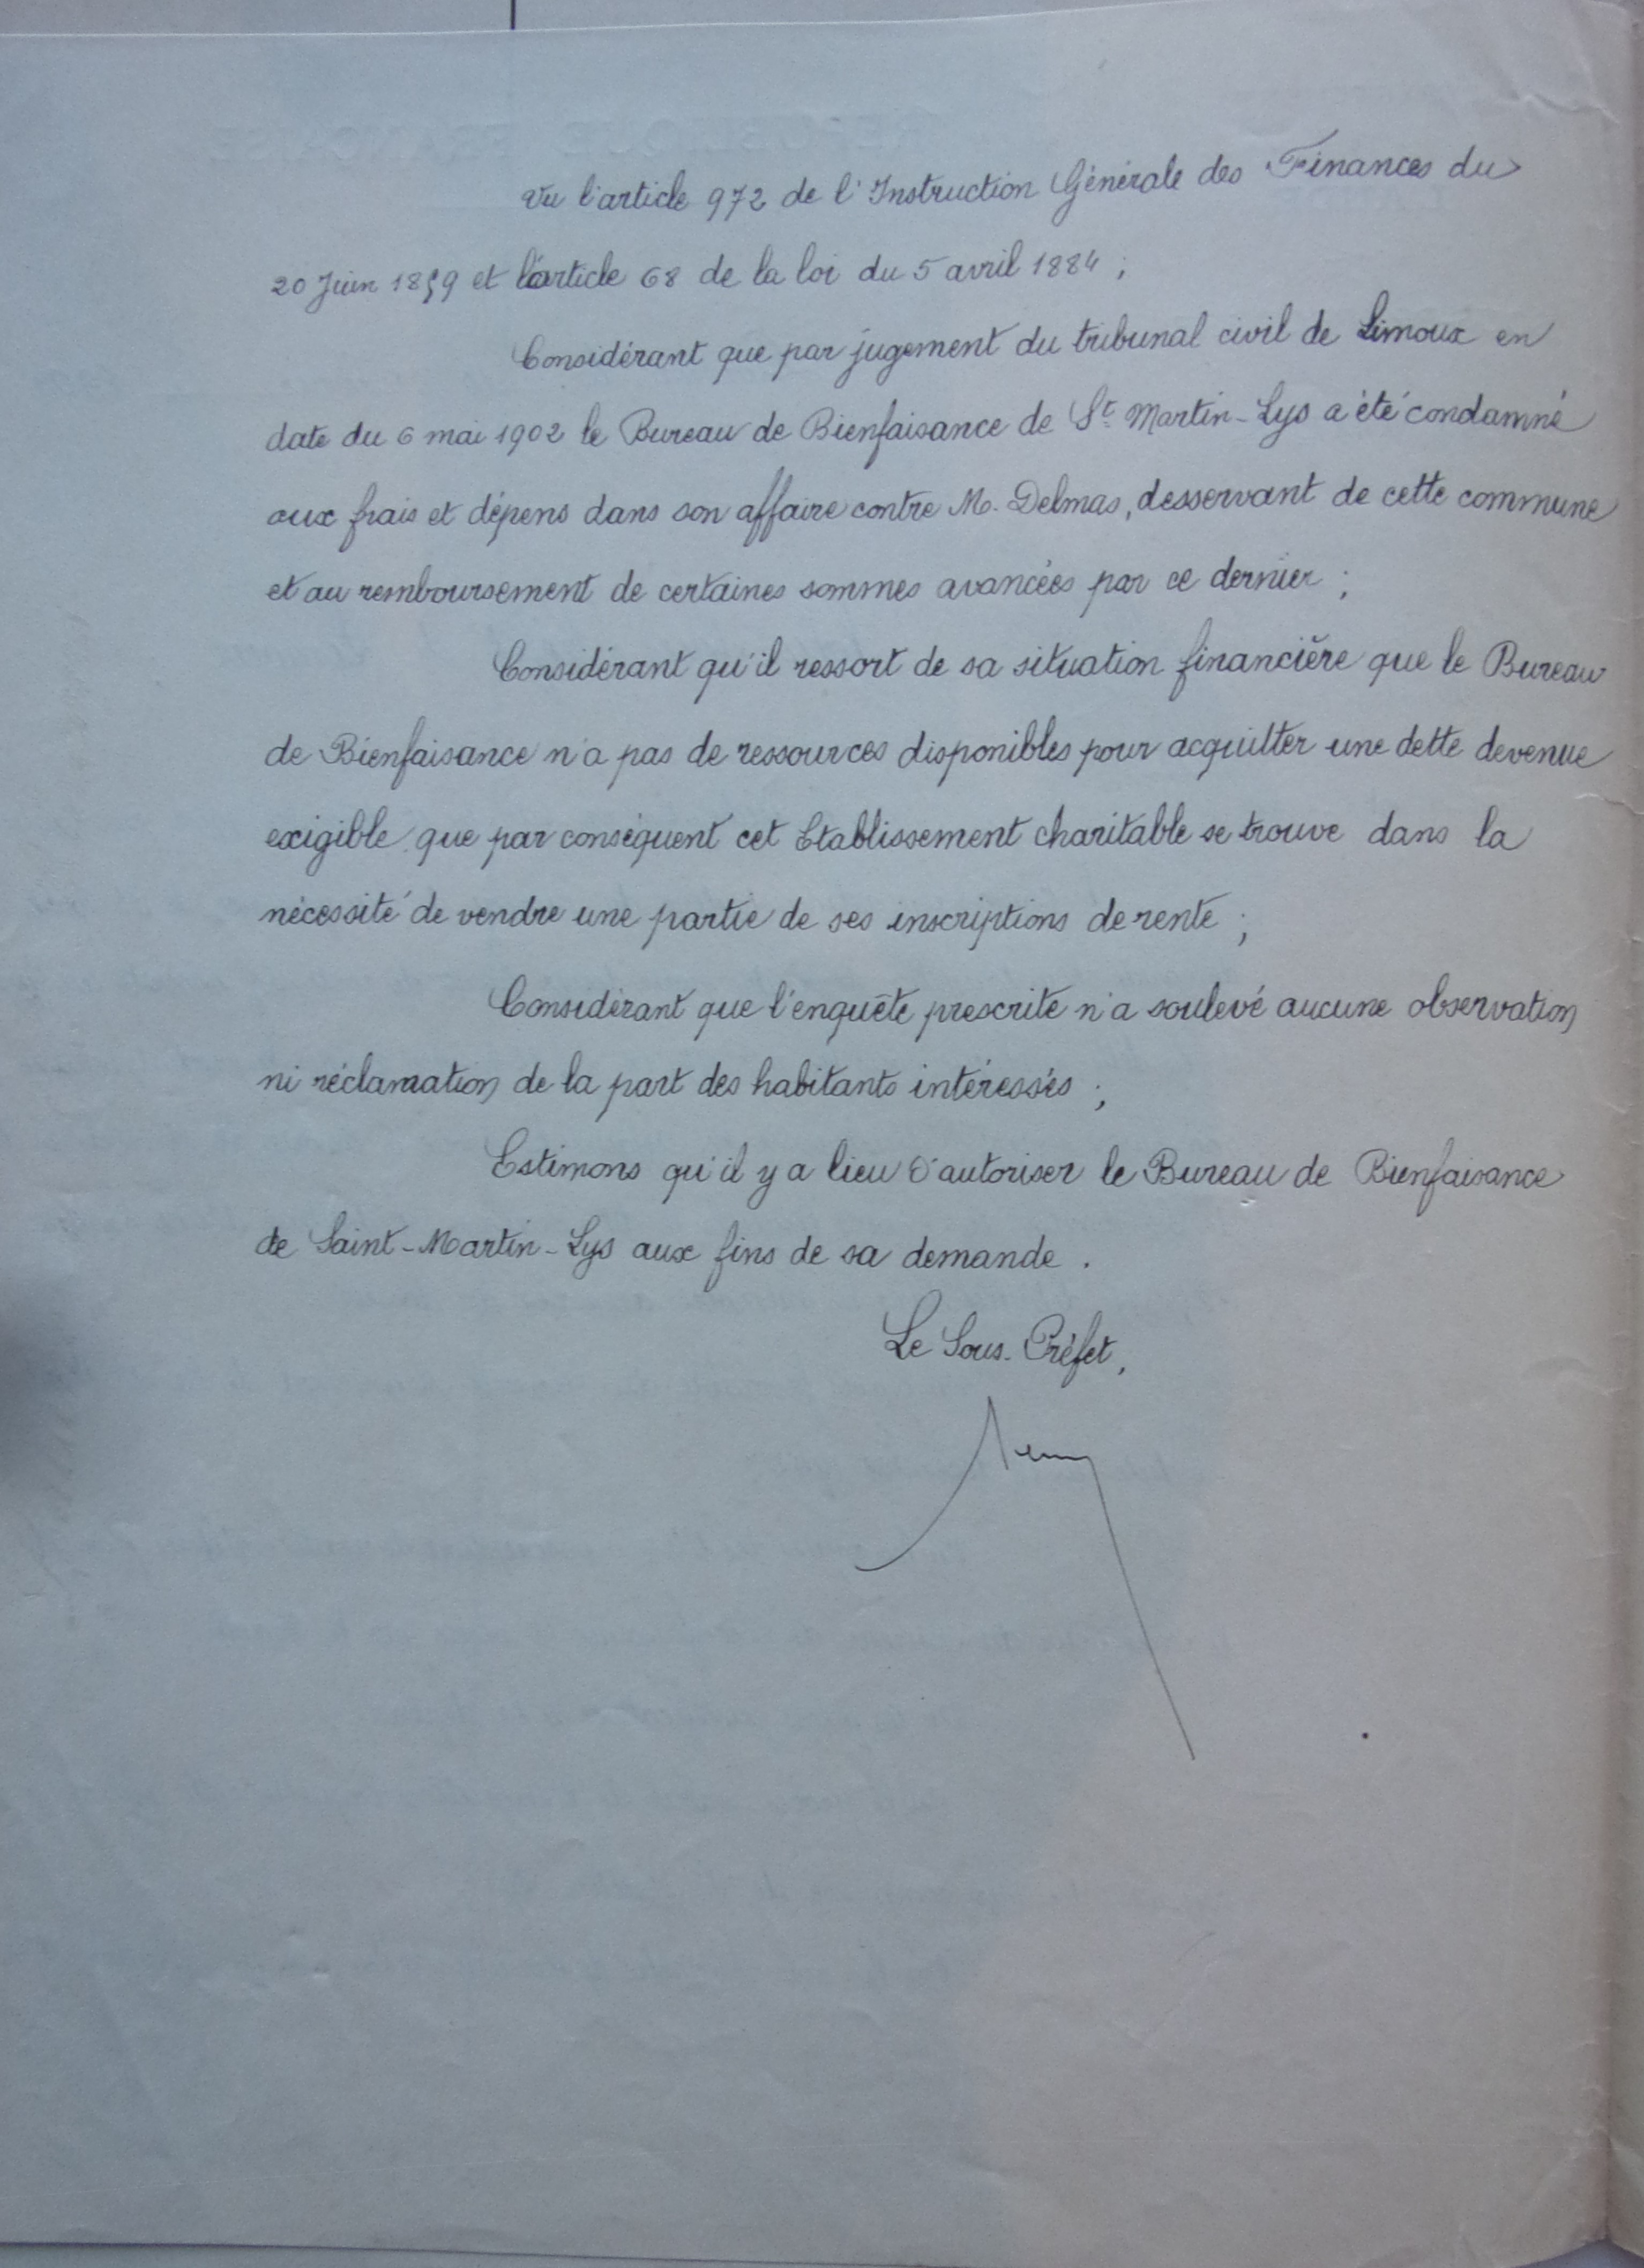 Vu l'article 972 de l'Instruction Générale des Finances du
20 Juin 1859 et l'article 68 de la loi du 5 avril 1884 ;
Considérant que par jugement du tribunal civil de Limoux en
date du 6 mai 1902 le Bureau de Bienfaisance de St Martin-Lys a été condamné
aux frais et dépens dans son affaire contre M. Delmas, desservant de cette commune
et au remboursement de certaines sommes avancées par ce dernier ;
Considérant qu'il ressort de sa situation financière que le Bureau
de Bienfaisance n'a pas de ressources disponibles pour acquitter une dette devenue
exigible, que par conséquent cet Etablissement charitable se trouve dans la
nécessité de vendre une partie de ses inscriptions de rente ;
Considérant que l'enquête prescrite n'a soulevé aucune observation
ni réclamation de la part des habitants intéressés ;
Estimons qu'il y a lieu d'autoriser le Bureau de Bienfaisance
de Saint-Martin-Lys aux fins de sa demande.
Le Sous-Préfet,